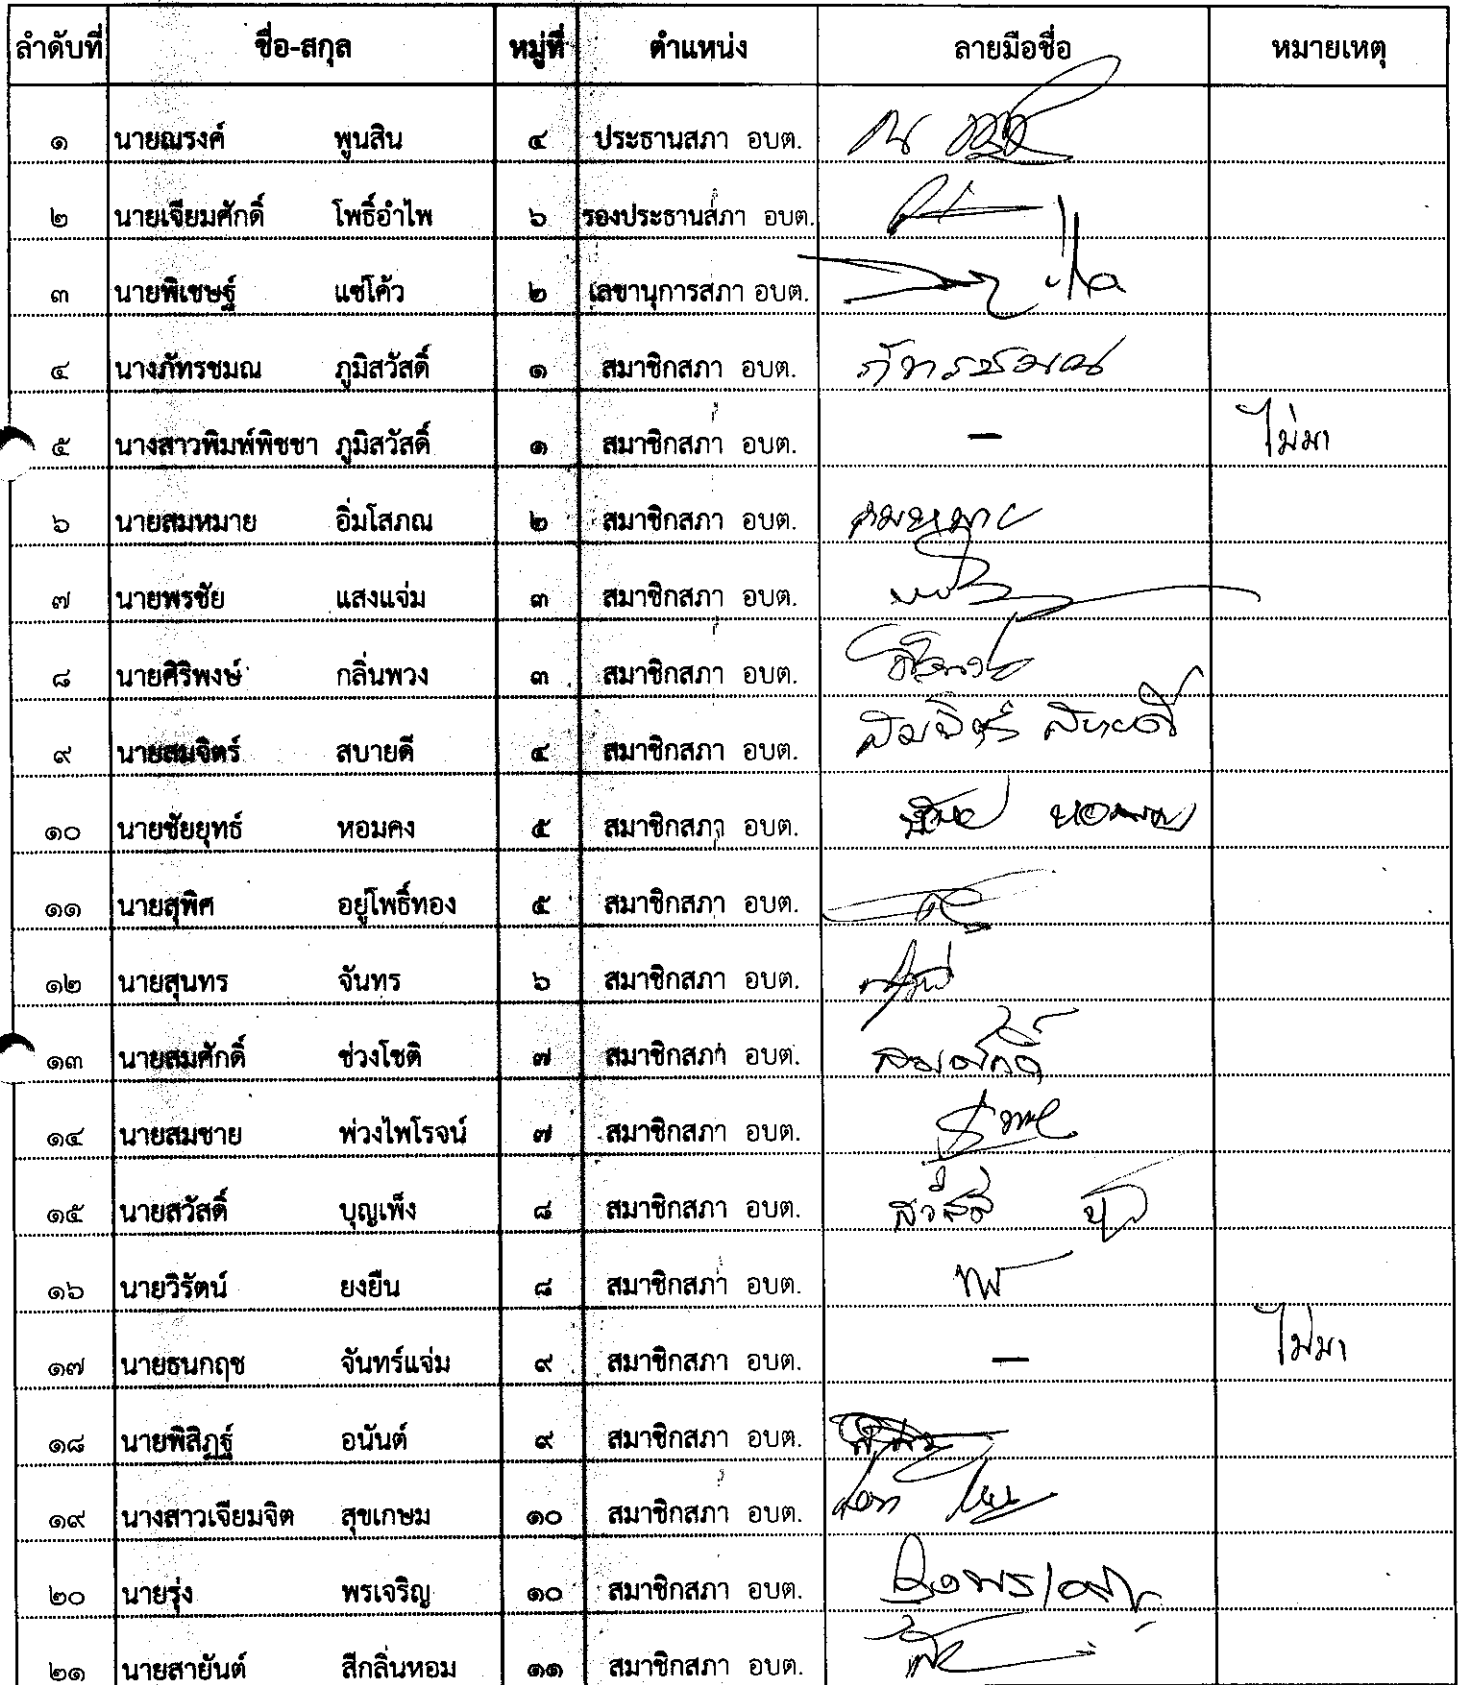 ลำดับที่ ชื่อ-สกุล หมู่ที่ ตำแหน่ง ลายมือชื่อ หมายเหตุ
๑ นายณรงค์ พูนสิน ๔ ประธานสภา อบต.
๒ นายเจียมศักดิ์ โพธิ์อำไพ ๖ รองประธานสภา อบต.
๓ นายพิเชษฐ์ แซ่โค้ว ๒ เลขานุการสภา อบต.
๔ นางภัทรชมณ ภูมิสวัสดิ์ ๑ สมาชิกสภา อบต. ภัทรชมณ
๕ นางสาวพิมพ์พิชชา ภูมิสวัสดิ์ ๑ สมาชิกสภา อบต. - ไม่มา
๖ นายสมหมาย อิ่มโสภณ ๒ สมาชิกสภา อบต. สมหมาย
๗ นายพรชัย แสงแจ่ม ๓ สมาชิกสภา อบต.
๘ นายศิริพงษ์ กลิ่นพวง ๓ สมาชิกสภา อบต.
๙ นายสมจิตร์ สบายดี ๔ สมาชิกสภา อบต. สมจิตร์ สบายดี
๑๐ นายชัยยุทธ์ หอมคง ๕ สมาชิกสภา อบต.
๑๑ นายสุพิศ อยู่โพธิ์ทอง ๕ สมาชิกสภา อบต.
๑๒ นายสุนทร จันทร ๖ สมาชิกสภา อบต.
๑๓ นายสมศักดิ์ ช่วงโชติ ๗ สมาชิกสภา อบต. สมศักดิ์
๑๔ นายสมชาย พ่วงไพโรจน์ ๗ สมาชิกสภา อบต.
๑๕ นายสวัสดิ์ บุญเพ็ง ๘ สมาชิกสภา อบต. สวัสดิ์
๑๖ นายวิรัตน์ ยงยืน ๘ สมาชิกสภา อบต.
๑๗ นายธนกฤช จันทร์แจ่ม ๙ สมาชิกสภา อบต. - ไม่มา
๑๘ นายพิสิฏฐ์ อนันต์ ๙ สมาชิกสภา อบต.
๑๙ นางสาวเจียมจิต สุขเกษม ๑๐ สมาชิกสภา อบต.
๒๐ นายรุ่ง พรเจริญ ๑๐ สมาชิกสภา อบต.
๒๑ นายสายันต์ สีกลิ่นหอม ๑๑ สมาชิกสภา อบต.